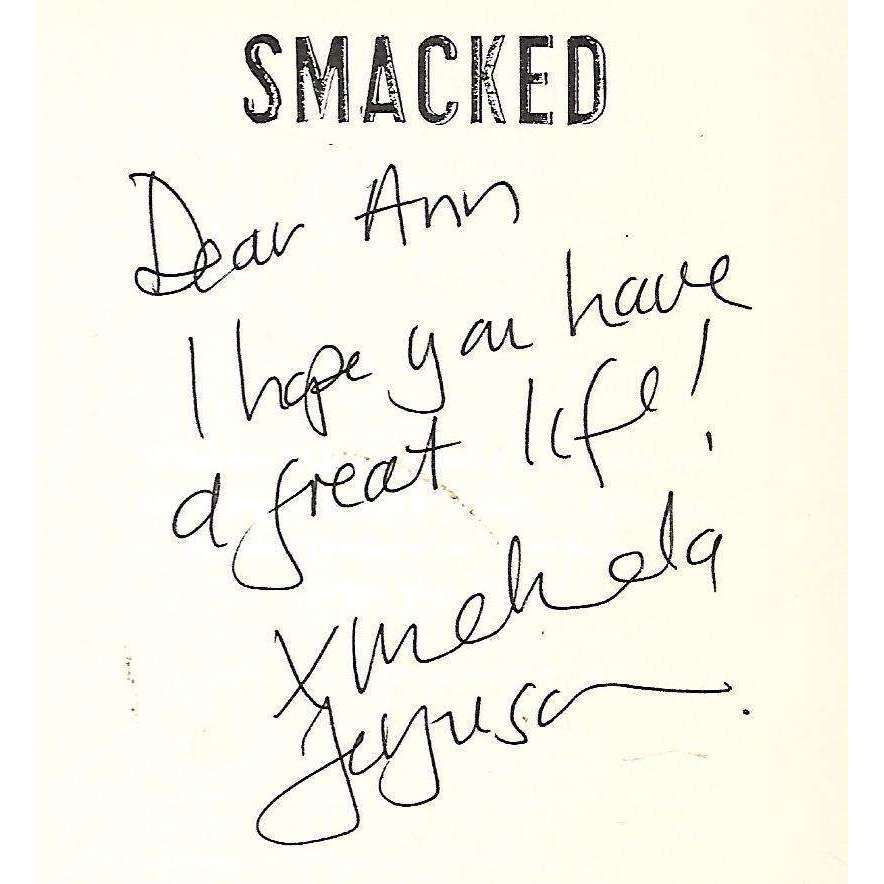 SMACKED
Dear Ann
I hope you have
a great life!
x Melinda
Ferguson.